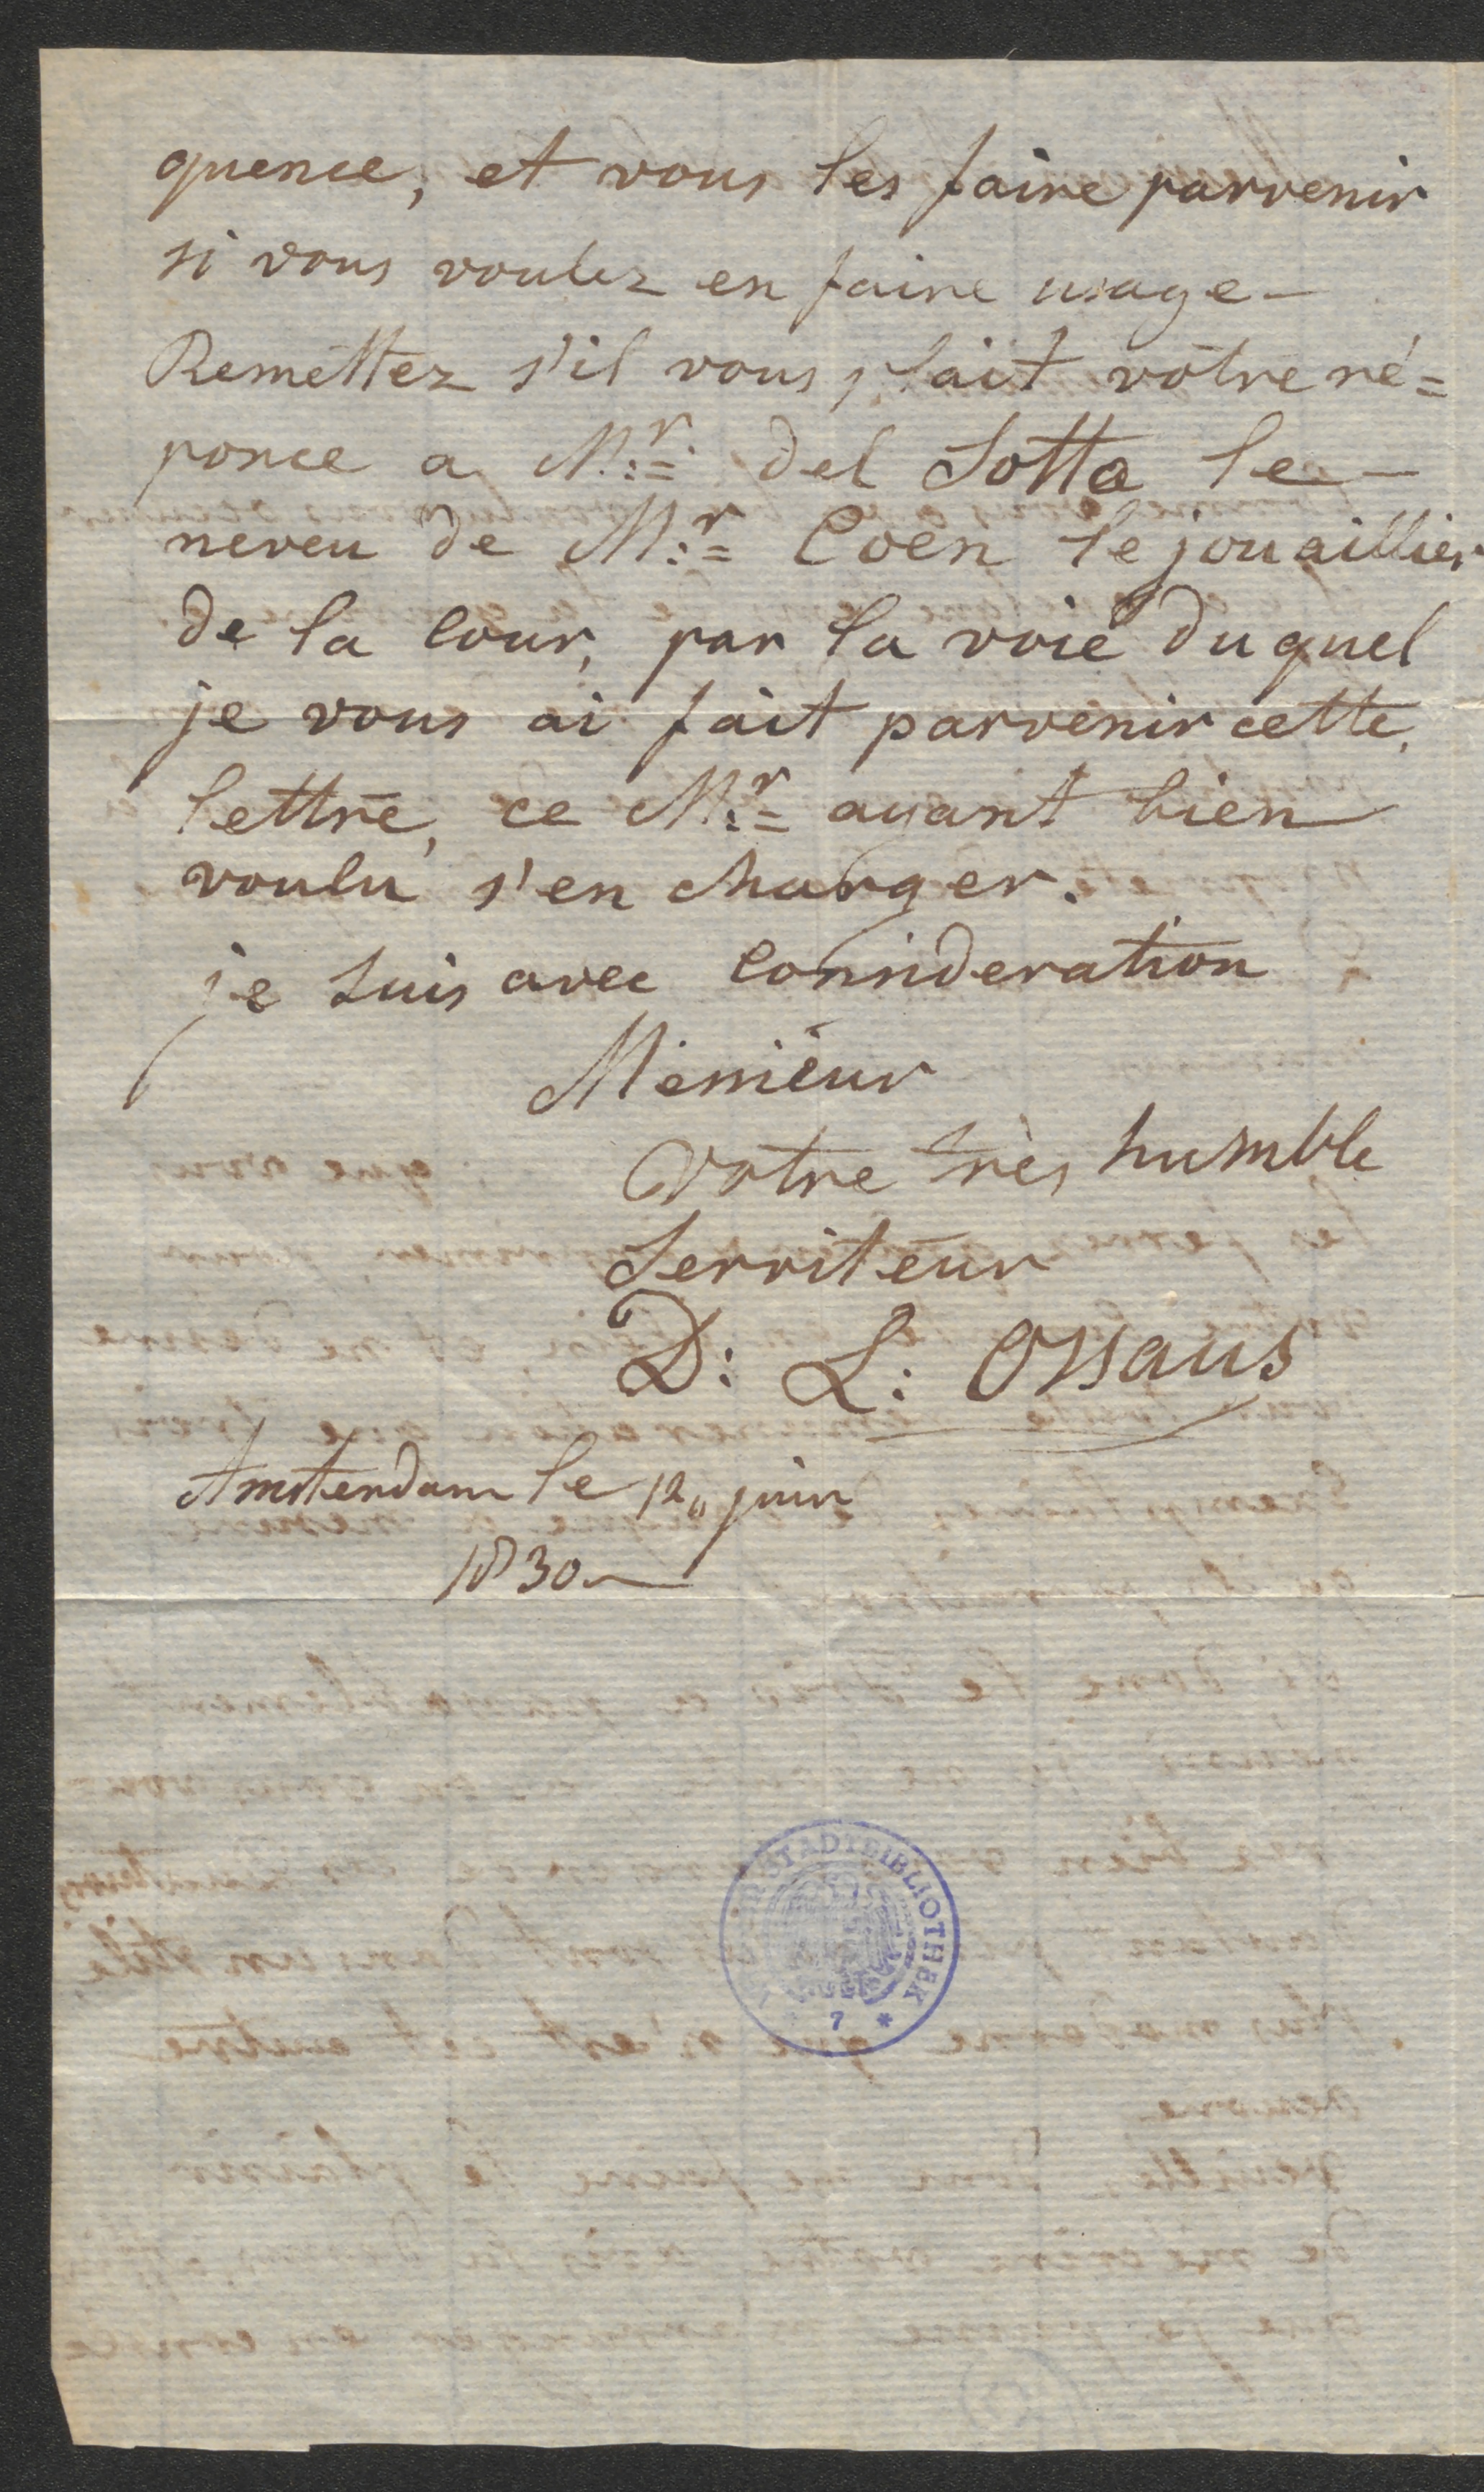 quence, et vous les faire parvenir
si vous voulez en faire usage—
Remettez s'il vous plait vôtre ré=
ponce a M:r= del Sotto le—
neveu de M:r= Coen le jouaillier
de la Cour, par la voie duquel
je vous ai fait parvenir cette
lettre, ce M:r= ayant bien
voulu s'en charger.
je suis avec Consideration
Messieur
Votre très humble
Serviteur
D: L: Ossaus
Amsterdam le 12 juin
1830
STADTBIBLIOTHEK
7 *